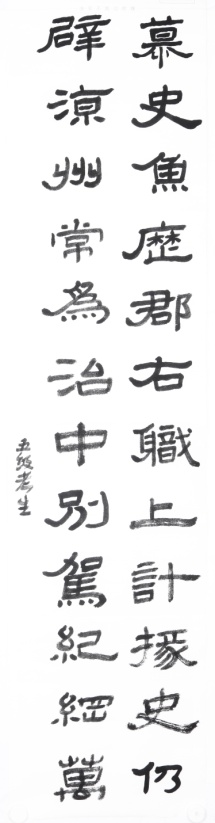 慕史魚歷郡右職上計掾史仍
辟涼州常為治中別駕紀綱萬
五级考生